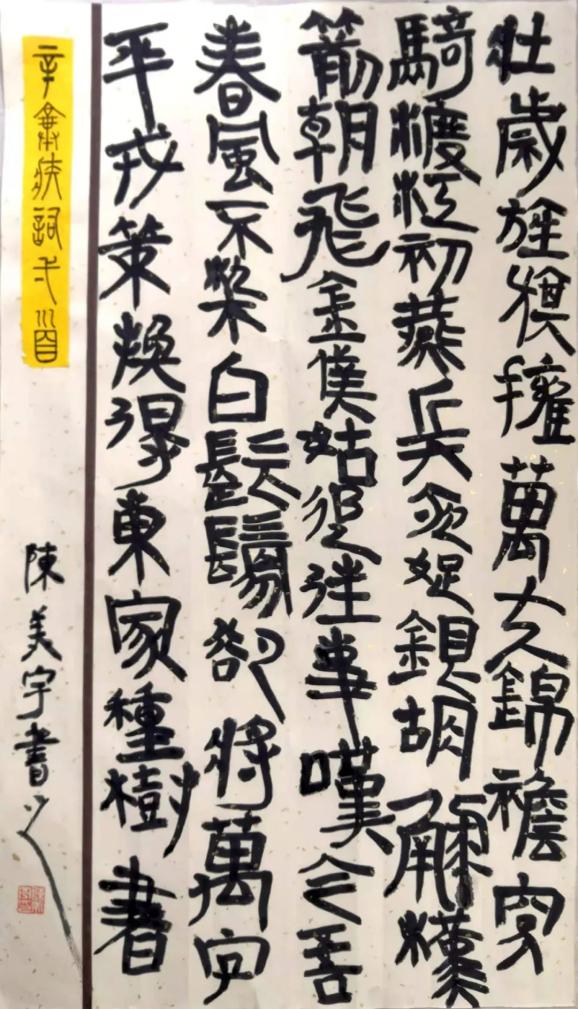 壯歲旌旗擁萬夫錦襜突
騎渡江初燕兵夜娖銀胡漢
箭朝飛金僕姑追往事嘆今吾
春風不染白髭鬚卻將萬字
平戎策換得東家種樹書
辛棄疾詞弌首
陳美宇書